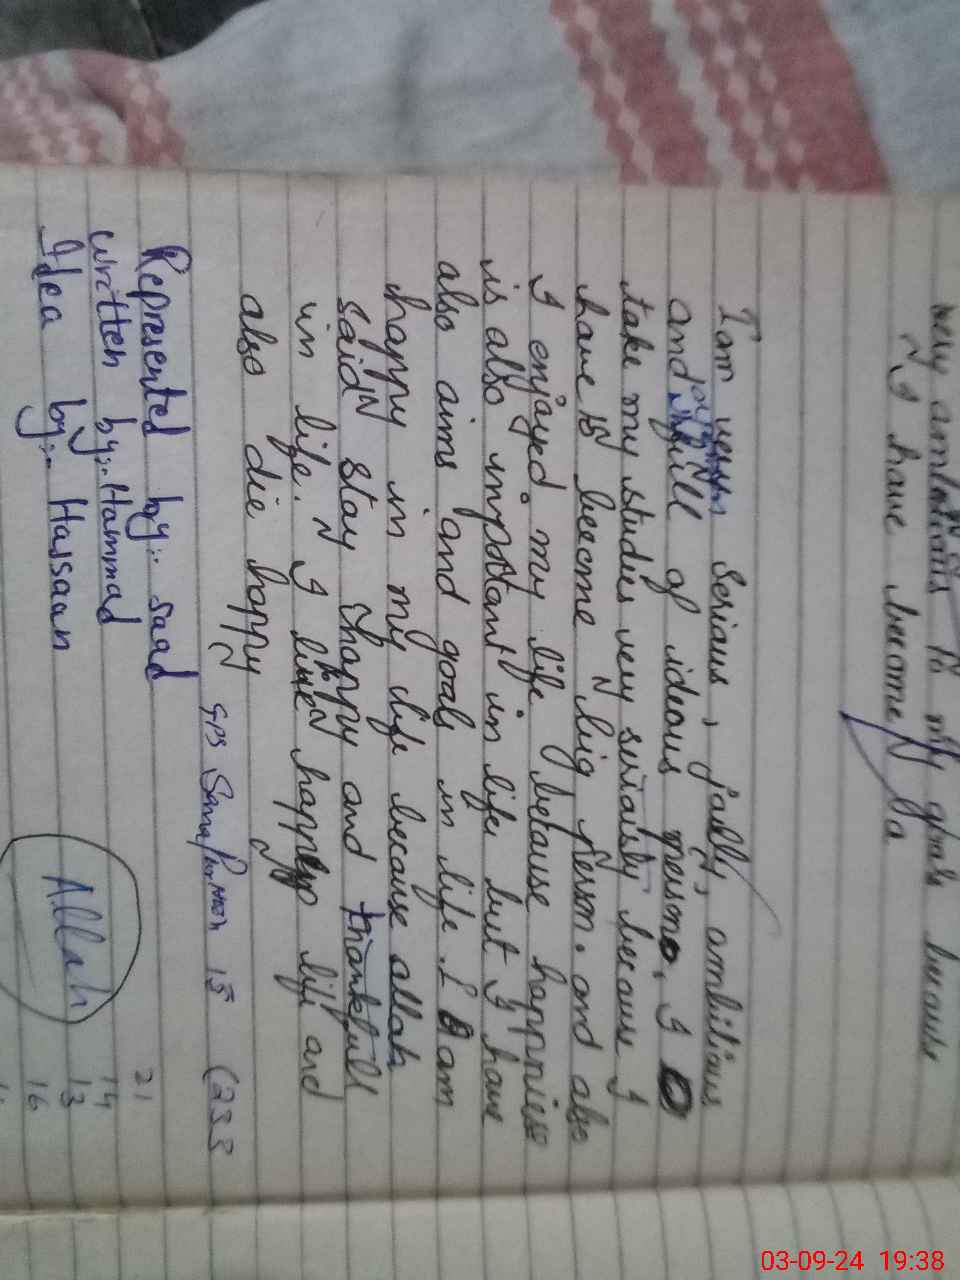 very ambitious to my goals because
I have become a
I am very serious, jolly, ambitious
and full of ideous person. I
take my studies very seriously because I
have to become big person. and also
I enjoyed my life because happniess
is also impotant in life but I have
also aims and goals in life. I am
happy in my life because allah
said stay happy and thankfull
in life. I live happy life and
also die happy
GPS 15 (233
Represented by:- saad
written by:- Hammad
Idea by:- Hassaan
Allah
21
14
13
16
03-09-24 19:38